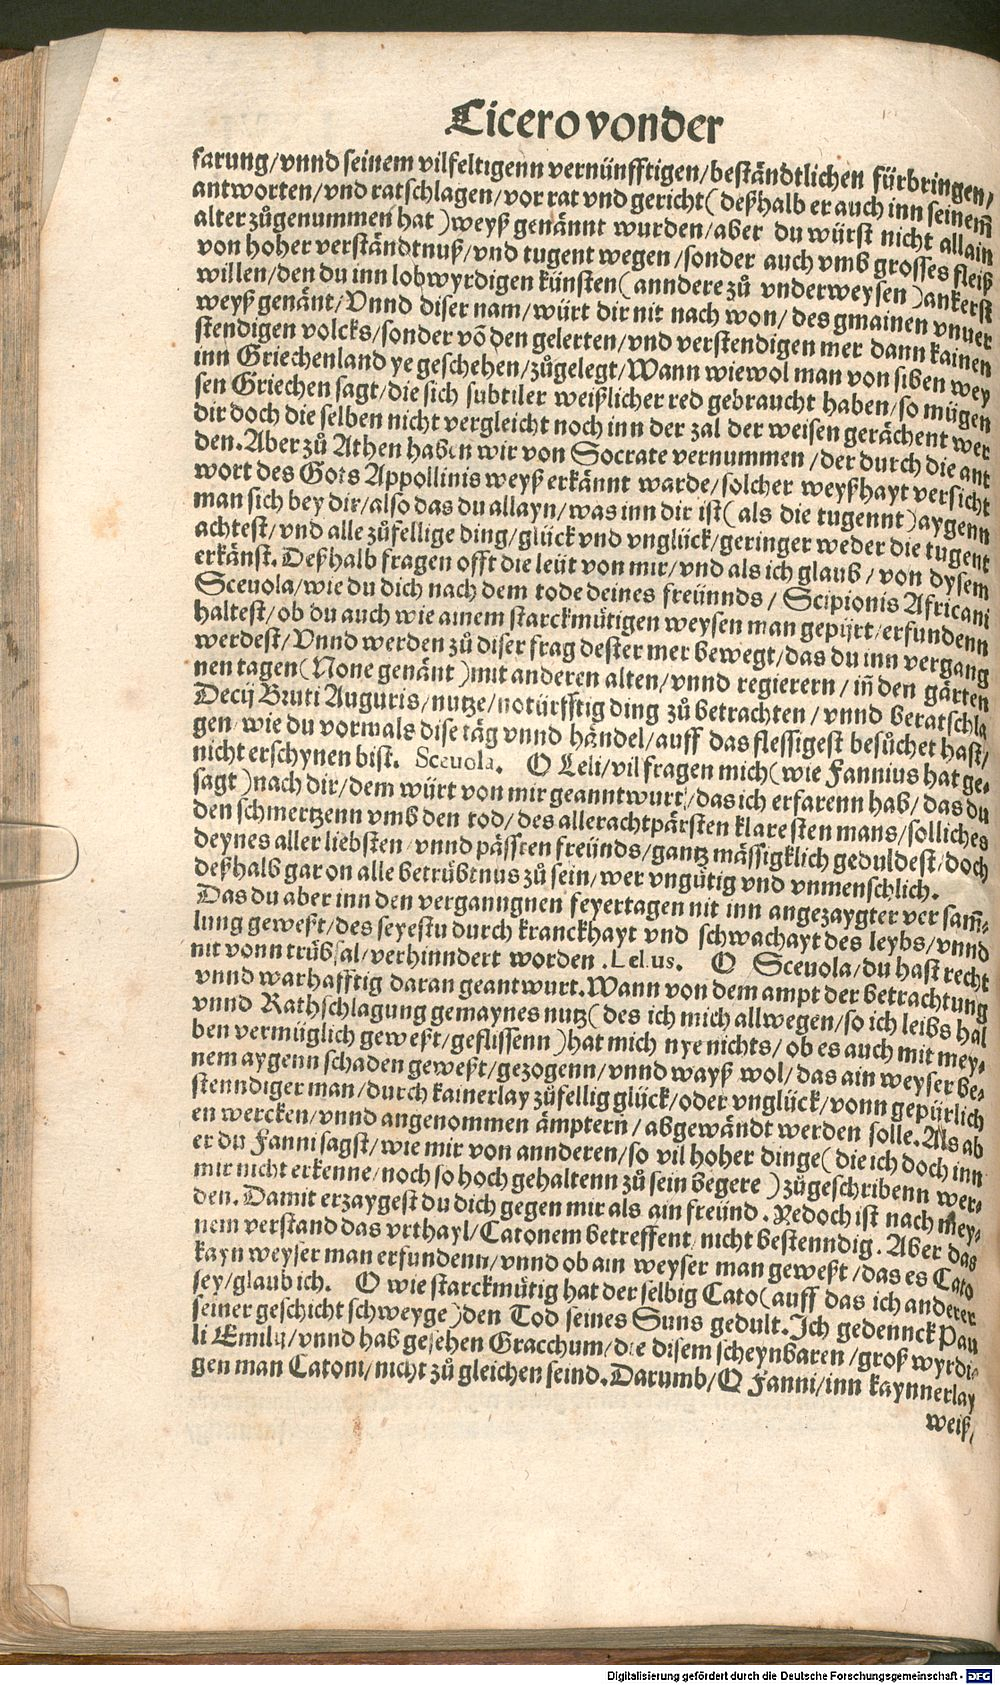 Cicero vonder
farung/vnnd seinem vilfeltigenn vernünfftigen/beständtlichen fürbringen/
antworten/vnd ratschlagen/vor rat vnd gericht(deßhalb er auch inn seinem̄
alter zůgenummen hat)weyß genännt wurden/aber du würst nicht allain
von hoher verständtnuß/vnd tugent wegen/sonder auch vmb grosses fleiß
willen/den du inn lobwyrdigen künsten(anndere zů vnderweysen)ankerst
weyß genänt/Vnnd diser nam/würt dir nit nach won/des gmainen vnuer
stendigen volcks/sonder võ den gelerten/vnd verstendigen mer dann kainen
inn Griechenland ye geschehen/zůgelegt/Wann wiewol man von siben wey
sen Griechen sagt/die sich subtiler weißlicher red gebraucht haben/so mügen
dir doch die selben nicht vergleicht noch inn der zal der weisen gerächent wer
den.Aber zů Athen haben wir von Socrate vernummen/der durch die ant
wort des Gots Appollinis weyß erkännt warde/solcher weyßhayt versicht
man sich bey dir/also das du allayn/was inn dir ist(als die tugennt)aygenn
achtest/vnd alle zůfellige ding/glück vnd vnglück/geringer weder die tugent
erkänst.Deßhalb fragen offt die leüt von mir/vnd als ich glaub/von dysem
Sceuola/wie du dich nach dem tode deines freünnds/Scipionis Africani
haltest/ob du auch wie ainem starckmütigen weysen man gepürt/erfundenn
werdest/Vnnd werden zů diser frag dester mer bewegt/das du inn vergang
nen tagen(None genänt)mit anderen alten/vnnd regierern/iñ den gärten
Decij Bruti Auguris/nutze/notürfftig ding zů betrachten/vnnd beratschla
gen/wie du vormals dise täg vnnd händel/auff das flessigest besůchet hast/
nicht erschynen bist. Sceuola. O Leli/vil fragen mich(wie Fannius hat ge-
sagt)nach dir/dem würt von mir geanntwurt/das ich erfarenn hab/das du
den schmertzenn vmb den tod/des allerachtpärsten klaresten mans/solliches
deynes aller liebsten/vnnd pässten freünds/gantz mässigklich geduldest/doch
deßhalb gar on alle betrübtnus zů sein/wer vngütig vnd vnmenschlich.
Das du aber inn den verganngnen feyertagen nit inn angezaygter ver sam̄-
lung geweßt/des seyestu durch kranckhayt vnd schwachayt des leybs/vnnd
nit vonn trübsal/verhinndert worden.Lelius. O Sceuola/du hast recht
vnnd warhafftig daran geantwurt.Wann von dem ampt der betrachtung
vnnd Rathschlagung gemaynes nutz(des ich mich allwegen/so ich leibs hal
ben vermüglich geweßt/geflissenn)hat mich nye nichts/ob es auch mit mey-
nem aygenn schaden geweßt/gezogenn/vnnd wayß wol/das ain weyser be-
stenndiger man/durch kainerlay zůfellig glück/oder vnglück/vonn gepürlich
en wercken/vnnd angenommen ämptern/abgewändt werden solle.Als ab
er du Fanni sagst/wie mir von annderen/so vil hoher dinge(die ich doch inn
mir nicht erkenne/noch so hoch gehaltenn zů sein begere)zůgeschribenn wer-
den.Damit erzaygest du dich gegen mir als ain freünd.Yedoch ist nach mey-
nem verstand das vrthayl/Catonem betreffent/nicht bestenndig.Aber das
kayn weyser man erfundenn/vnnd ob ain weyser man geweßt/das es Cato
sey/glaub ich. O wie starckmütig hat der selbig Cato(auff das ich anderer
seiner geschicht schweyge)den Tod seines Suns gedult.Ich gedennck Pau
li Emily/vnnd hab gesehen Gracchum/die disem scheynbaren/groß wyrdi-
gen man Catoni/nicht zů gleichen seind.Darumb/O Fanni/inn kaynnerlay
weiß/
Digitalisierung gefördert durch die Deutsche Forschungsgemeinschaft - DFG